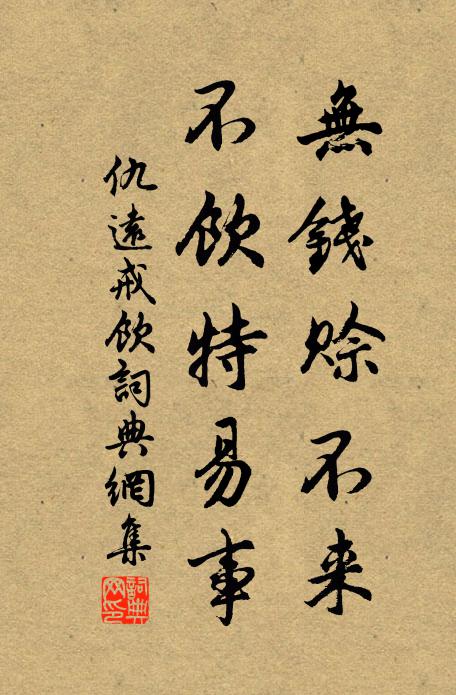 無錢賒不来
不飲特易事
仇遠戒飲詞典網集
詞典
网印